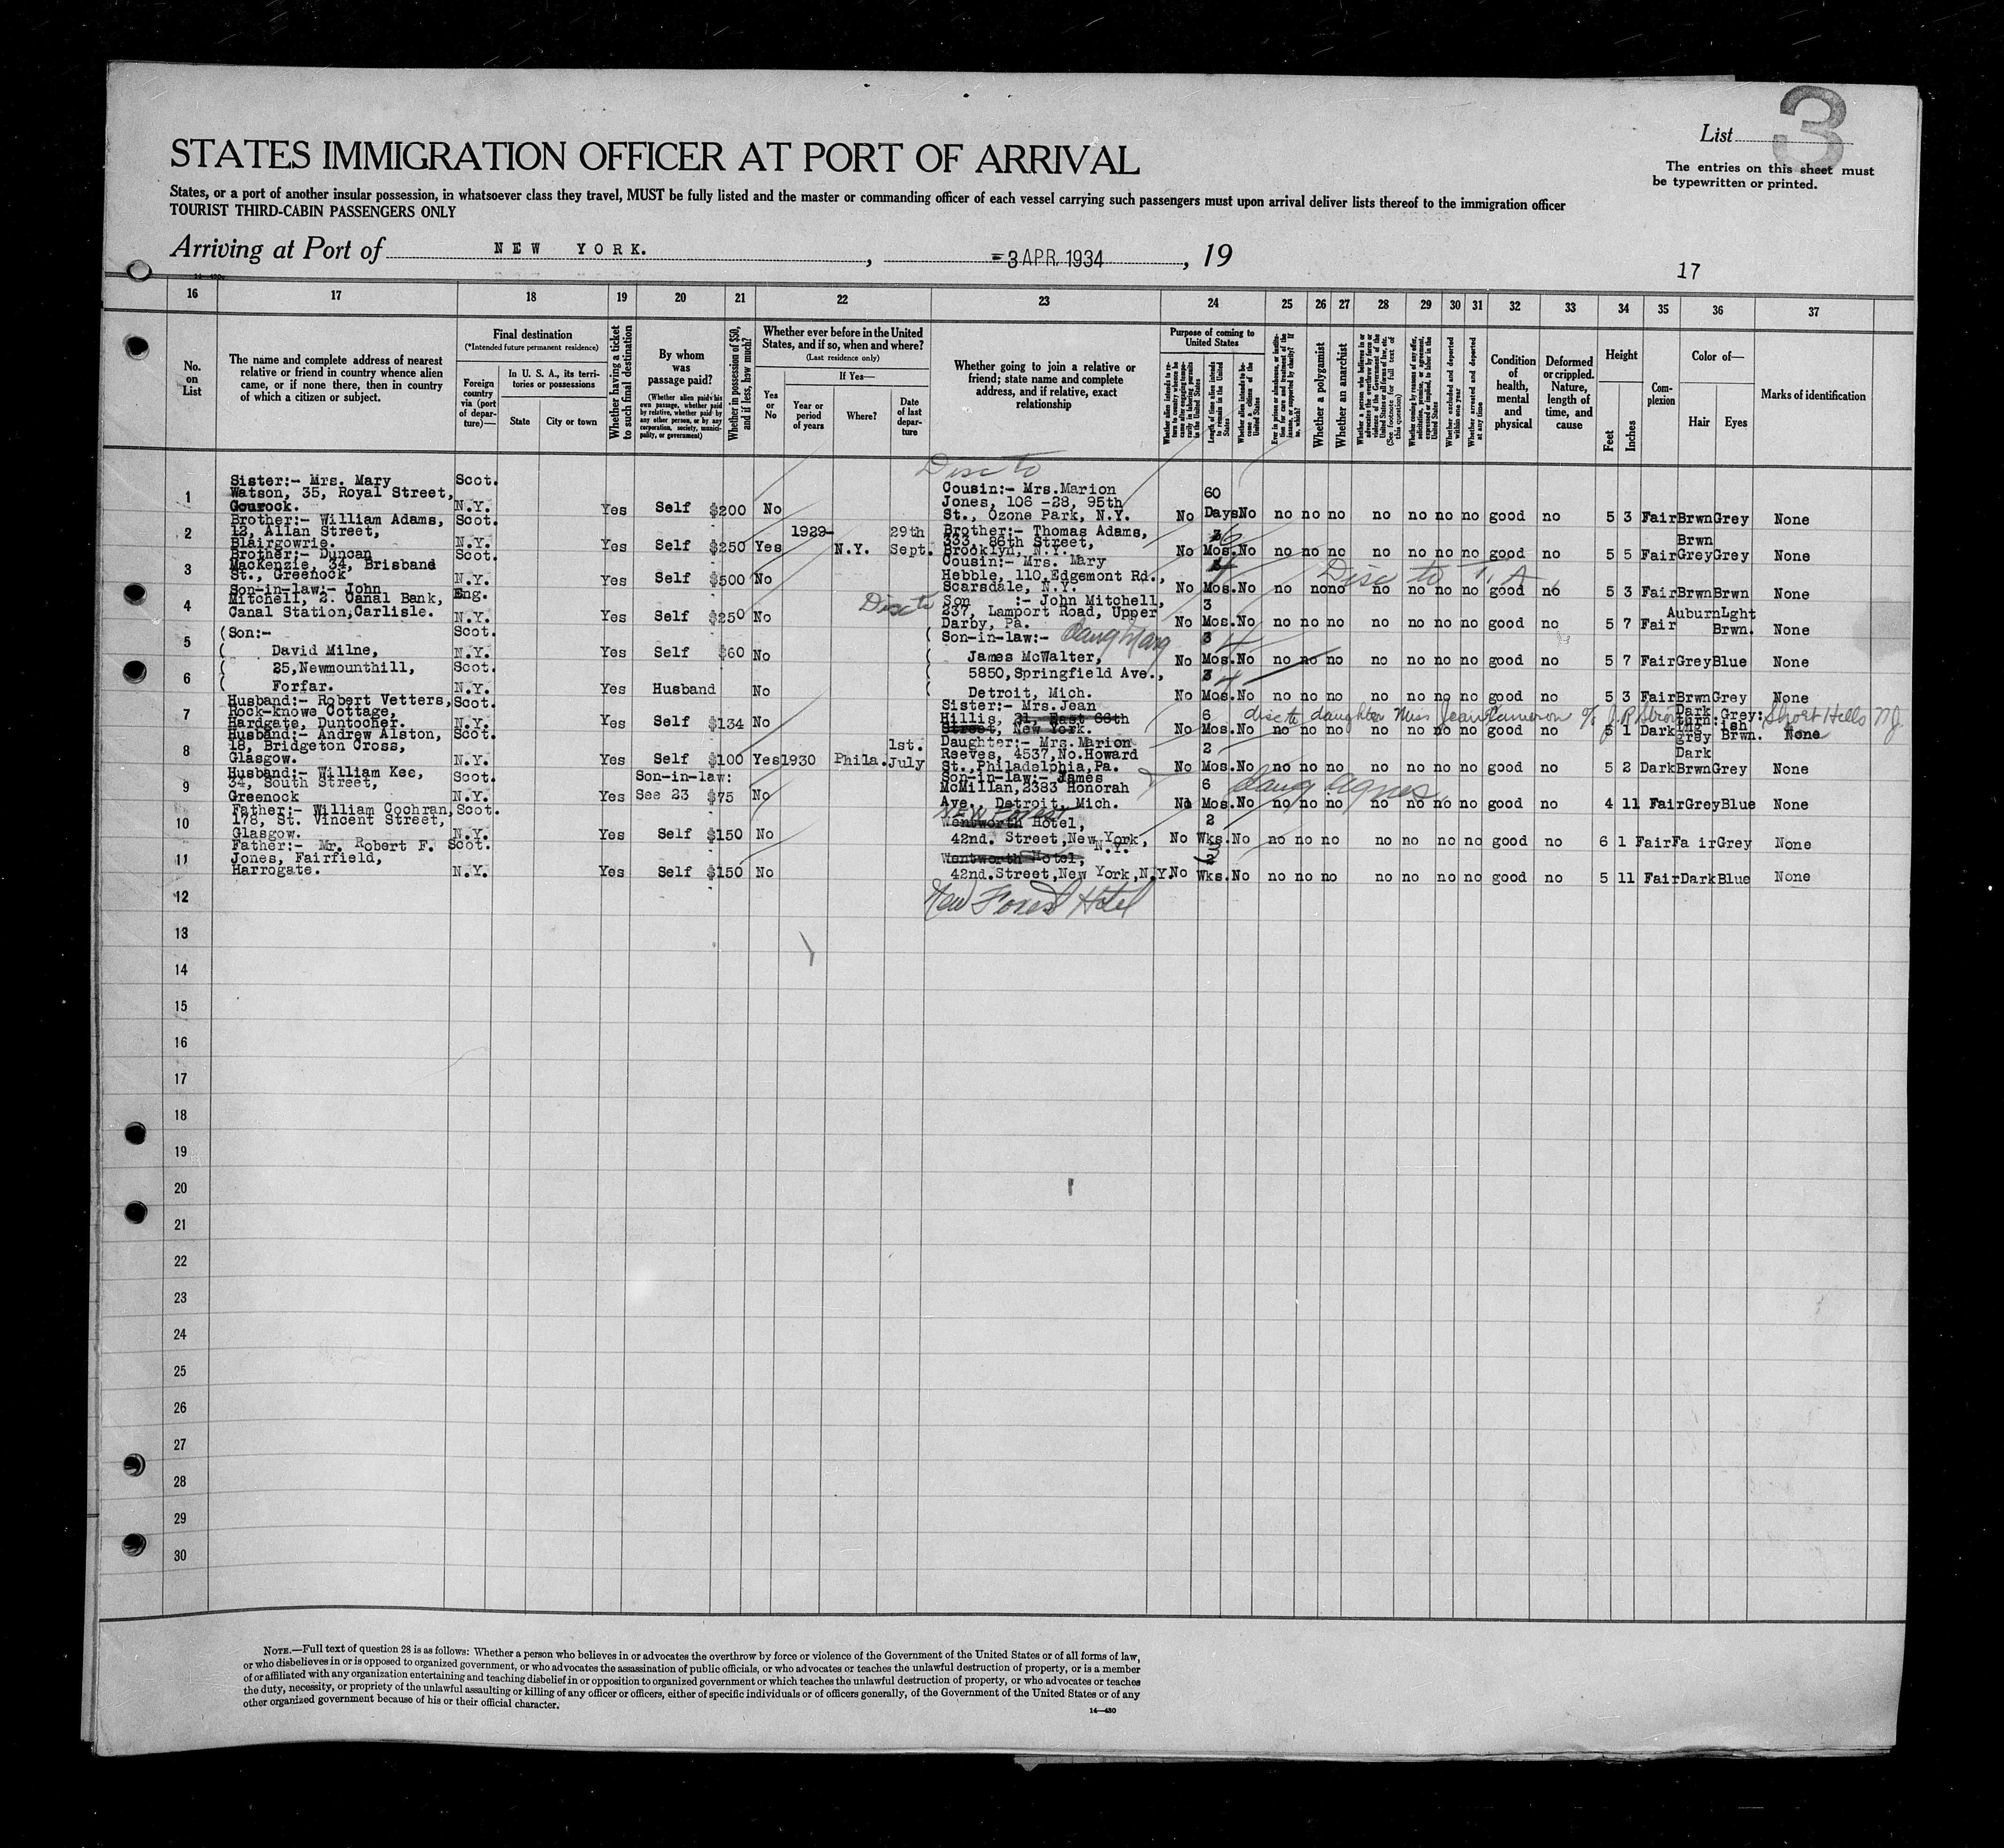 List 3
STATES IMMIGRATION OFFICER AT PORT OF ARRIVAL
The entries on this sheet must
be typewritten or printed.
States, or a port of another insular possession, in whatsoever class they travel, MUST be fully listed and the master or commanding officer of each vessel carrying such passengers must upon arrival deliver lists thereof to the immigration officer
TOURIST THIRD-CABIN PASSENGERS ONLY
Arriving at Port of NEW YORK. , -3 APR. 1934 , 19
17
16 17 18 19 20 21 22 23 24 25 26 27 28 29 30 31 32 33 34 35 36 37
No.
on
List
The name and complete address of nearest
relative or friend in country whence alien
came, or if none there, then in country
of which a citizen or subject.
Final destination
(*Intended future permanent residence)
Foreign
country
via (port
of depar-
ture)—
In U. S. A., its terri-
tories or possessions
State City or town
Whether having a ticket
to such final destination
By whom
was
passage paid?
(Whether alien paid his
own passage, whether paid
by relative, whether paid by
any other person, or by any
corporation, society, munici-
pality, or government)
Whether in possession of $50,
and if less, how much?
Whether ever before in the United
States, and if so, when and where?
(Last residence only)
Yes
or
No
If Yes—
Year or
period
of years
Where?
Date
of last
depar-
ture
Whether going to join a relative or
friend; state name and complete
address, and if relative, exact
relationship
Purpose of coming to
United States
Length of time alien intends
to remain in the United
States
Whether a polygamist
Whether an anarchist
Whether excluded and deported
within one year
Whether arrested and deported
at any time
Condition
of
health,
mental
and
physical
Deformed
or crippled.
Nature,
length of
time, and
cause
Height
Feet Inches
Com-
plexion
Color of—
Hair Eyes
Marks of identification
Disc to
1 Sister:- Mrs. Mary Scot. Cousin:- Mrs.Marion 60
Watson, 35, Royal Street, Jones, 106 -28, 95th
Gourock. N.Y. Yes Self $200 No St., Ozone Park, N.Y. No Days No no no no no no no no good no 5 3 Fair Brwn Grey None
2 Brother:- William Adams, Scot. 1929- 29th Brother:- Thomas Adams, 6
12, Allan Street, 333, 86th Street, Brwn
Blairgowrie. N.Y. Yes Self $250 Yes N.Y. Sept. Brooklyn, N.Y. No Mos. No no no no no no no no good no 5 5 Fair Grey Grey None
3 Brother:- Duncan Scot. Cousin:- Mrs. Mary 4
MacKenzie, 34, Brisband Hebble, 110,Edgemont Rd., Disc to T. A
St., Greenock N.Y. Yes Self $500 No Scarsdale, N.Y. No Mos. No no no no no no no no good no 5 3 Fair Brwn Brwn None
4 Son-in-law:- John Eng. Disc to Son :- John Mitchell, 3
Mitchell, 2. Canal Bank, 237, Lamport Road, Upper Auburn Lght
Canal Station,Carlisle. N.Y. Yes Self $250 No Darby, Pa. No Mos. No no no no no no no no good no 5 7 Fair Brwn. None
5 (Son:- Scot. (Son-in-law:- 3 4
( David Milne, Yes Self $60 No ( James McWalter, No Mos. No no no no no no no no good no 5 7 Fair Grey Blue None
6 ( 25,Newmounthill, Scot. 5850,Springfield Ave., 3 4
( Forfar. N.Y. Yes Husband No ( Detroit, Mich. No Mos. No no no no no no no no good no 5 3 Fair Brwn Grey None
7 Husband:- Robert Vetters, Scot. Sister:- Mrs.Jean 6 disc to daughter Miss Jean Cameron c/o J. R Short Hills NJ.
Rock-knowe Cottage, Hillis, 21, East 66th Dark Grey:
Hardgate, Duntocher. N.Y. Yes Self $134 No Street, New York. No Mos. No no no no no no no no good no 5 1 Dark grey Brwn. None
8 Husband:- Andrew Alston, Scot. 1st. Daughter:- Mrs.Marion 2
18, Bridgeton Cross, Reeves, 4537,No.Howard Dark
Glasgow. N.Y. Yes Self $100 Yes 1930 Phila. July St.,Philadelphia,Pa. No Mos. No no no no no no no no good no 5 2 Dark Brwn Grey None
9 Husband:- William Kee, Scot. Son-in-law: Son-in-law:- James 6
34, South Street, McMillan,2383 Honorah daug Agnes
Greenock N.Y. Yes See 23 $75 No Ave., Detroit, Mich. No Mos. No no no no no no no no good no 4 11 Fair Grey Blue None
10 Father:- William Cochran, Scot. New Forest 2
178, St. Vincent Street, Wentworth Hotel,
Glasgow. N.Y. Yes Self $150 No 42nd. Street,New York, N.Y. No Wks. No no no no no no no no good no 6 1 Fair Fa ir Grey None
11 Father:- Mr. Robert F. Scot.
Jones, Fairfield, Wentworth Hotel,
Harrogate. N.Y. Yes Self $150 No 42nd.Street,New York,N.Y. No Wks. No no no no no no no no good no 5 11 Fair Dark Blue None
12 New Forest Hotel
13
14
15
16
17
18
19
20
21
22
23
24
25
26
27
28
29
30
NOTE.—Full text of question 28 is as follows: Whether a person who believes in or advocates the overthrow by force or violence of the Government of the United States or of all forms of law,
or who disbelieves in or is opposed to organized government, or who advocates the assassination of public officials, or who advocates or teaches the unlawful destruction of property, or is a member
of or affiliated with any organization entertaining and teaching disbelief in or opposition to organized government or which teaches the unlawful destruction of property, or who advocates or teaches
the duty, necessity, or propriety of the unlawful assaulting or killing of any officer or officers, either of specific individuals or of officers generally, of the Government of the United States or of any
other organized government because of his or their official character.
14—430